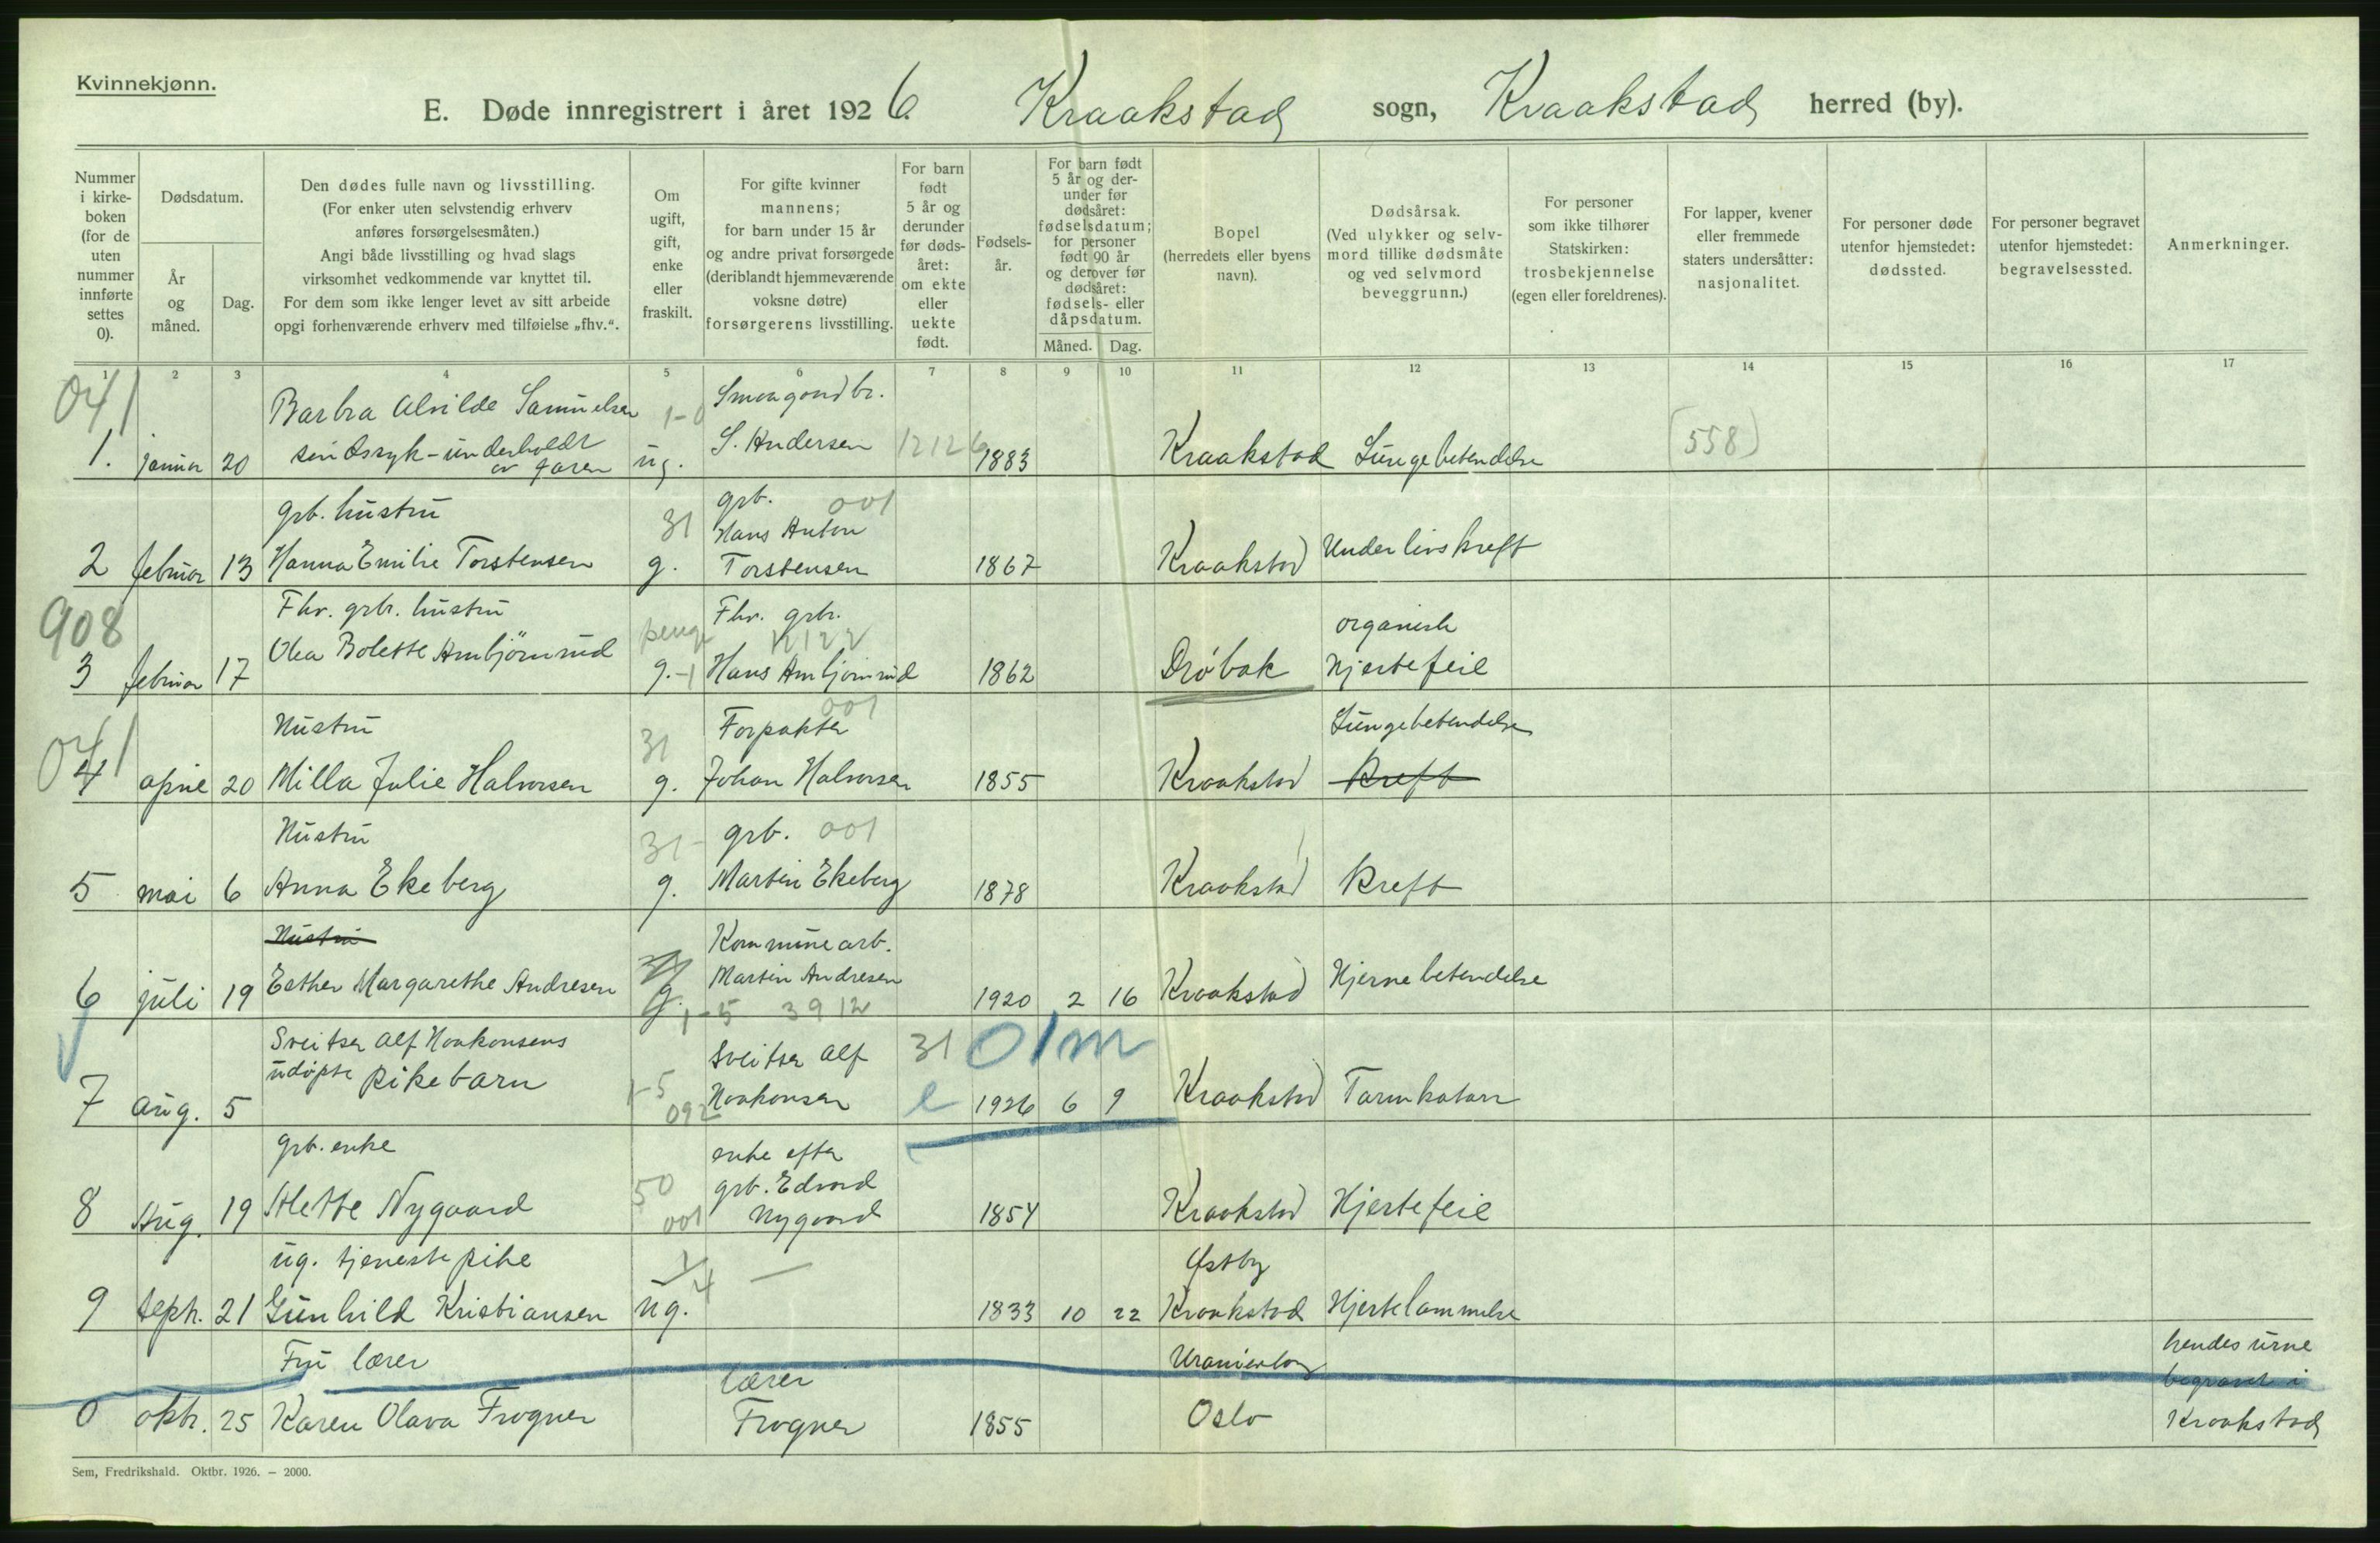 Kvinnekjønn.
E. Døde innregistrert i året 1926 Kraakstad sogn, Kraakstad herred (by).
Nummer i kirke-boken (for de uten nummer innførte settes 0).
Dødsdatum.
År og måned.
Dag.
Den dødes fulle navn og livsstilling.
(For enker uten selvstendig erhverv
anføres forsørgelsesmåten.)
Angi både livsstilling og hvad slags
virksomhet vedkommende var knyttet til.
For dem som ikke lenger levet av sitt arbeide
opgi forhenværende erhverv med tilføielse „fhv.“.
Om ugift, gift, enke eller fraskilt.
For gifte kvinner
mannens;
for barn under 15 år
og andre privat forsørgede
(deriblandt hjemmeværende
voksne døtre)
forsørgerens livsstilling.
For barn født 5 år og derunder før døds-året: om ekte eller uekte født.
Fødsels-år.
For barn født 5 år og der-under før dødsåret: fødselsdatum; for personer født 90 år og derover før dødsåret: fødsels- eller dåpsdatum.
Måned. Dag.
Bopel
(herredets eller byens
navn).
Dødsårsak.
(Ved ulykker og selv-
mord tillike dødsmåte
og ved selvmord
beveggrunn.)
For personer
som ikke tilhører
Statskirken:
trosbekjennelse
(egen eller foreldrenes).
For lapper, kvener
eller fremmede
staters undersåtter:
nasjonalitet.
For personer døde
utenfor hjemstedet:
dødssted.
For personer begravet
utenfor hjemstedet:
begravelsessted.
Anmerkninger.
1 2 3 4 5 6 7 8 9 10 11 12 13 14 15 16 17
041 Barbra Alvilde Samuelsen 1-0 Smaagardbr.
1. januar 20 sindssyk - underholdt av faren ug. S. Andersen 12126 1883 Kraakstad Lungebetendelse (558)
grb. hustru 31 grb. 001
Hans Anton
2 februar 13 Hanna Emilie Torstensen g. Torstensen 1867 Kraakstad Underlivskreft
908 Fhv. grb. hustru Fhv. grb. organisk
penge 12122
3 februar 17 Olea Bolette Ambjörnrud g. -1 Hans Ambjörnrud 1862 Drøbak Hjertefeil
041 Hustru 31 Forpakter 001 Lungebetendelse
4 april 20 Milla Julie Halvorsen g. Johan Halvorsen 1855 Kraakstad Kreft
Hustru 31- grb. 001
5 mai 6 Anna Ekeberg g. Martin Ekeberg 1878 Kraakstad Kreft
Hustru Kommunearb.
6 juli 19 Esther Margarethe Andresen g. Martin Andresen 1920 2 16 Kraakstad Hjernebetendelse
1-5 39 12
Sveitser Alf Haakonsens Sveitser Alf 31 01m
udøpte pikebarn 1-5
7 aug. 5 092 Haakonsen e 1926 6 9 Kraakstad Tarmkatarr
grb. enke enke efter
50 grb. Edvard
8 Aug. 19 Alette Nygaard 001 Nygaard 1854 Kraakstad Hjertefeil
ug. tjenestepike 1/4 — Østby
9 septr. 21 Gunhild Kristiansen ug. 1833 10 22 Kraakstad Hjertelammelse
Fru lærer lærer Uranienborg hendes urne
begravet i
0 oktr. 25 Karen Olava Frogner Frogner 1855 Oslo Kraakstad
Sem, Fredrikshald. Oktbr. 1926. – 2000.